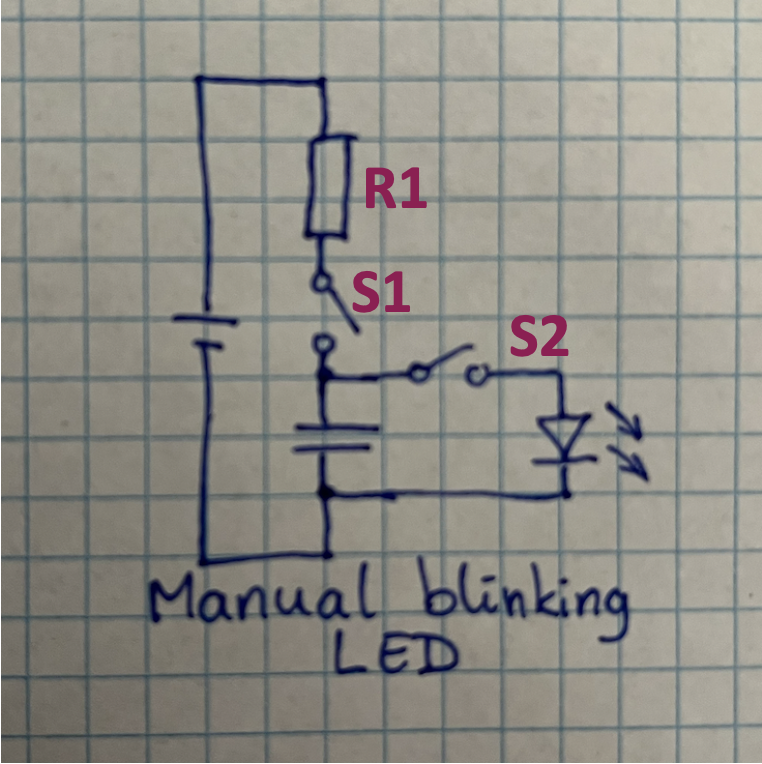 R1
S1
S2
Manual blinking
LED